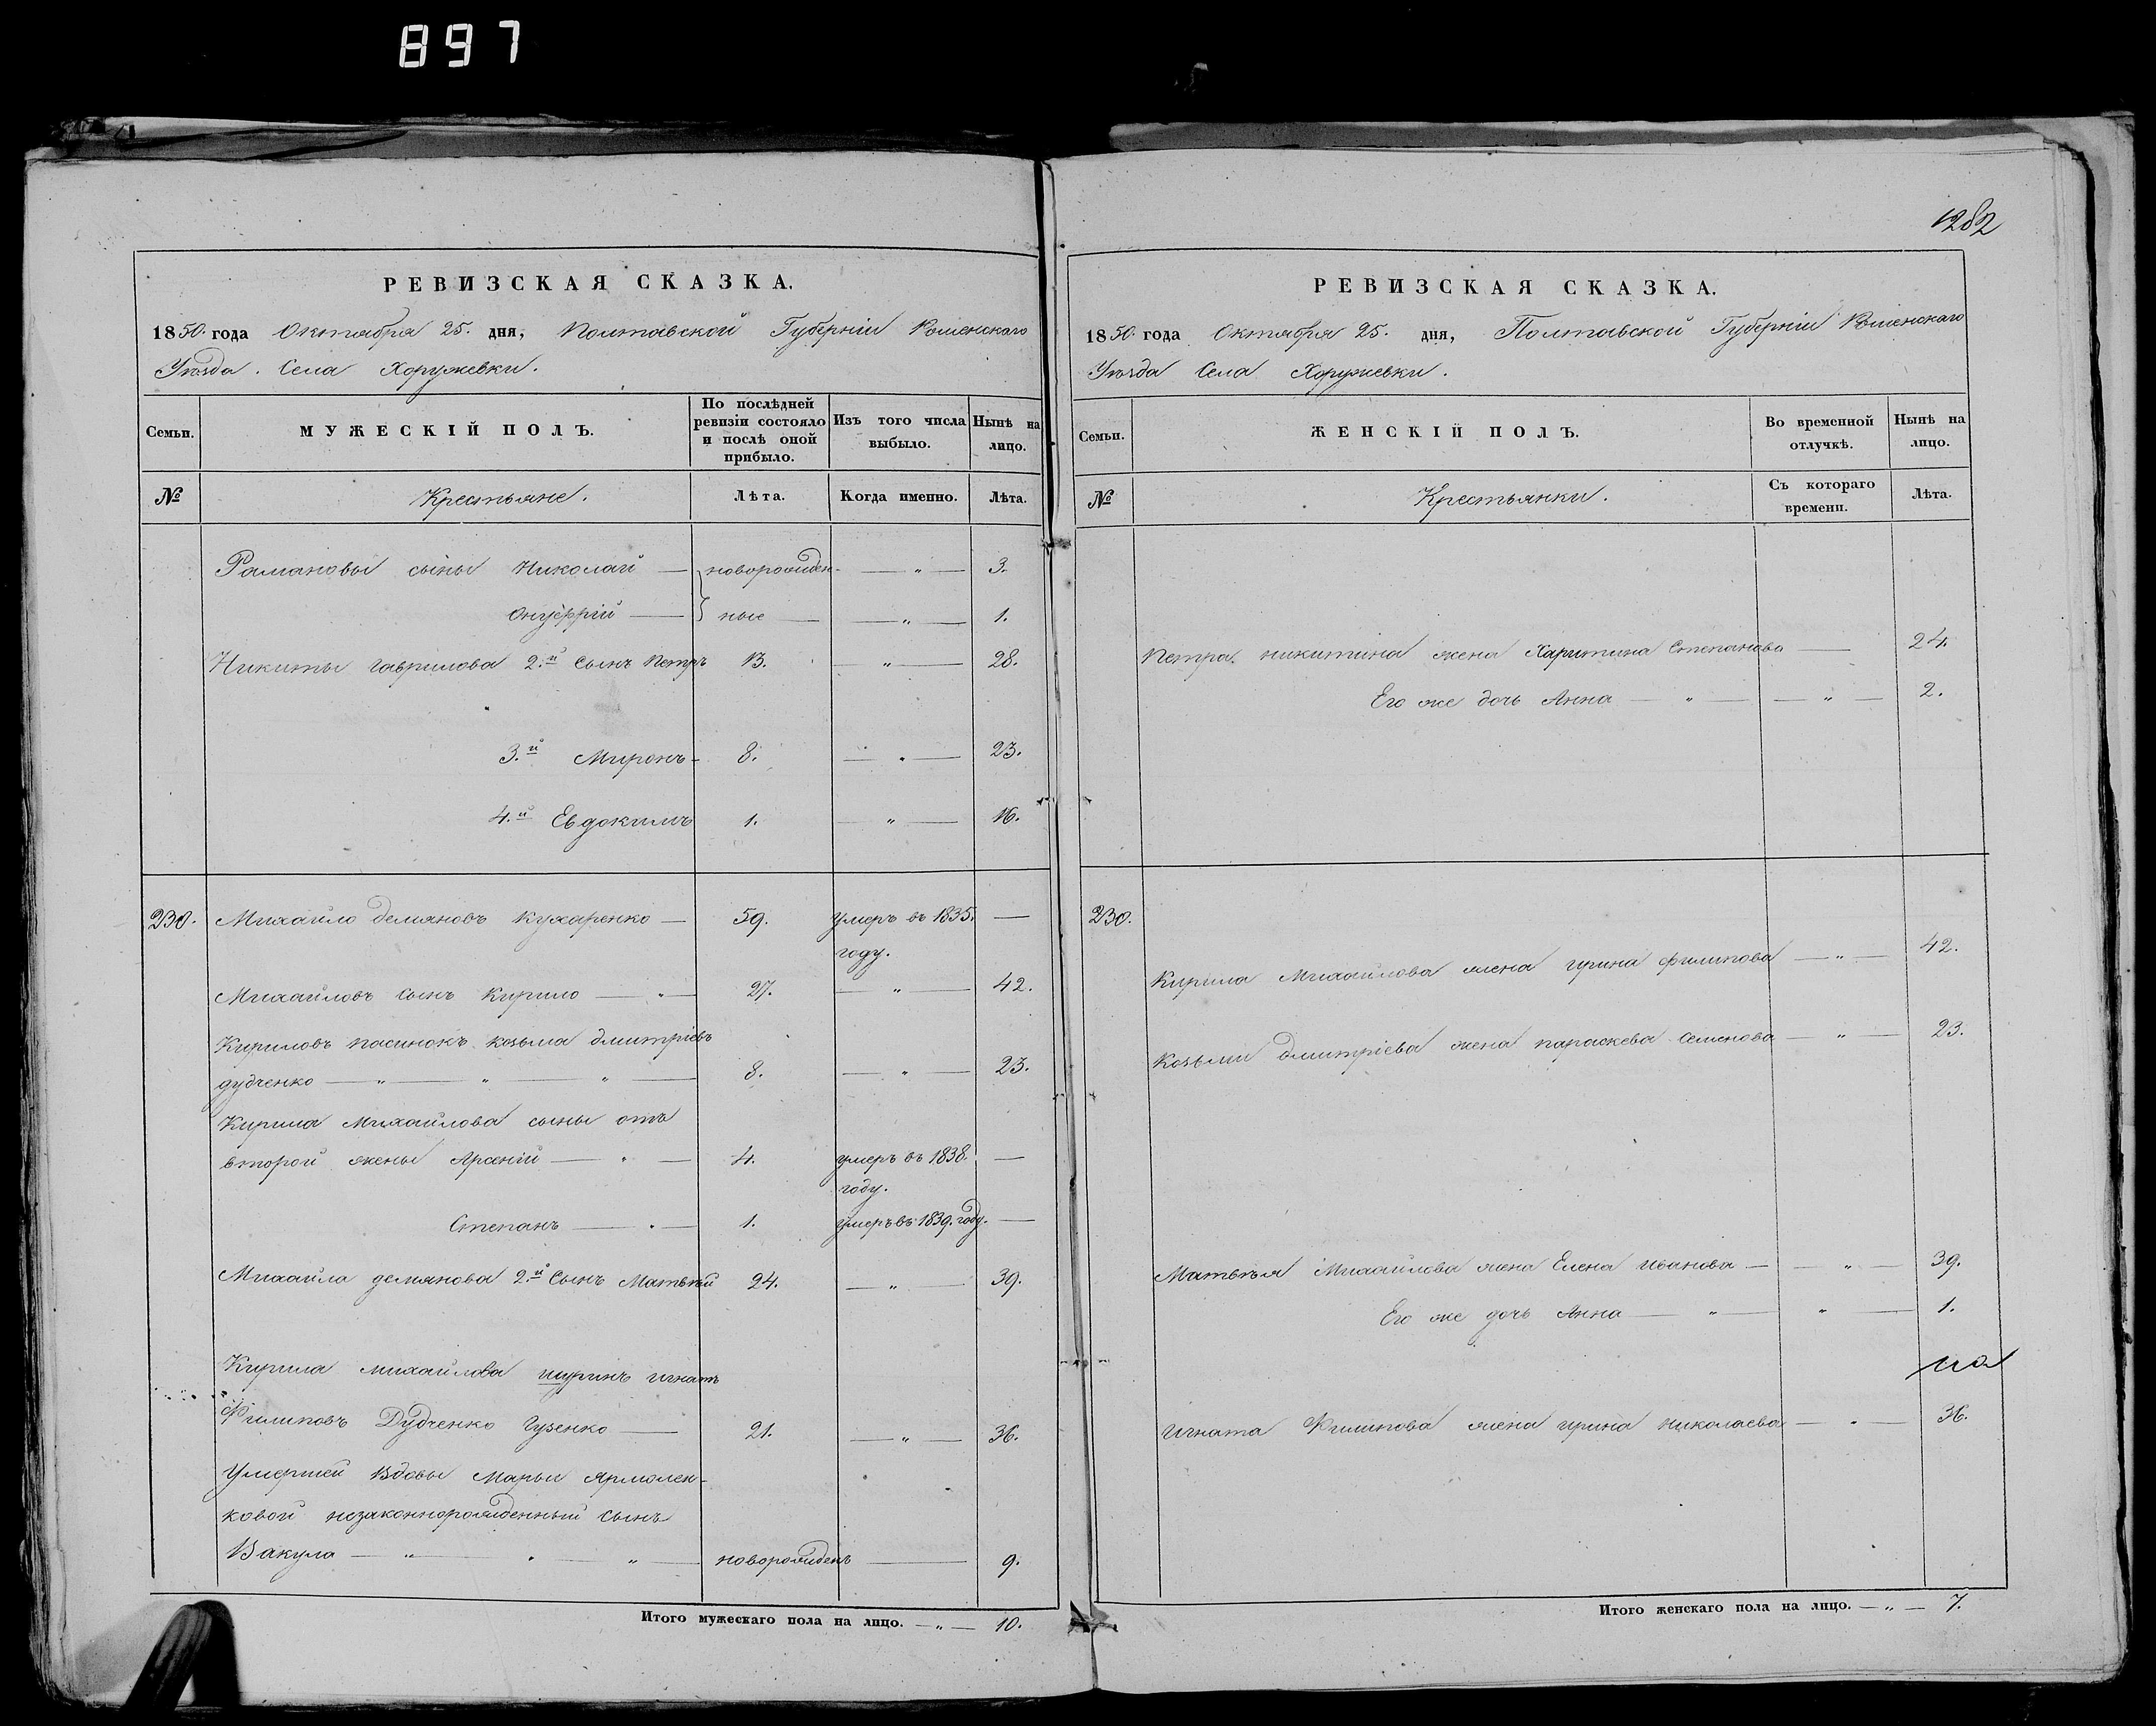 897
1282
РЕВИЗСКАЯ СКАЗКА.
1850. года Октября 25. дня, Полтавской Губерніи Роменскаго
Уѣзда. Села Хоружевки.
Семьи.
МУЖЕСКІЙ ПОЛЪ.
По послѣдней ревизіи состояло и послѣ оной прибыло.
Изъ того числа выбыло.
Нынѣ на лицо.
№
Крестьяне.
Лѣта.
Когда именно.
Лѣта.
Рамановы сыны Николай — новорожден- — „ — 3.
Онуфрій — ные — „ — 1.
Никиты гаврилова 2.й Сынъ Петръ 13. „ — 28.
3.й Миронъ - 8. — „ — 23.
4.й Евдокимъ 1. — „ — 16.
230. Михайло демяновъ кухаренко — 59. умеръ въ 1835. —
году.
Михайловъ Сынъ Кирило — „ — 27. — „ — 42.
Кириловъ пасинокъ козьма дмитріевъ
дудченко — „ — „ — „ — 8. — „ — 23.
Кирила Михайлова сыны отъ
второй жены Арсеній — „ — 4. умеръ въ 1838. —
году.
Степанъ — „ — 1. умеръ въ 1839. году. —
Михайла демянова 2.й Сынъ Матвѣй 24. — „ — 39.
Кирила михайлова шуринъ игнатъ
Филиповъ Дудченко Гузенко — 21. — „ — 36.
Умершей Вдовы Марьи Ярмолен-
ковой незаконнорожденный Сынъ
Вакула — „ — „ — „ — новорожденъ — 9.
Итого мужескаго пола на лицо. — „ — 10.
РЕВИЗСКАЯ СКАЗКА.
1850. года Октября 25. дня, Полтавской Губерніи Роменскаго
Уѣзда Села Хоружевки.
Семьи.
ЖЕНСКІЙ ПОЛЪ.
Во временной отлучкѣ.
Нынѣ на лицо.
№
Крестьянки.
Съ котораго времени.
Лѣта.
Петра никитина жена Харитина Степанова — 24.
Его же дочь Анна — „ — — „ — 2.
230.
Кирила Михайлова жена ирина филипова — „ — 42.
Козьми дмитріева жена параскева Семенова — „ — 23.
Матвѣя Михайлова жена Елена иванова — — „ — 39.
Его же дочь Анна — „ — „ — 1.
Игната Филипова жена ирина николаева — „ — 36.
Итого женскаго пола на лицо. — „ — 7.